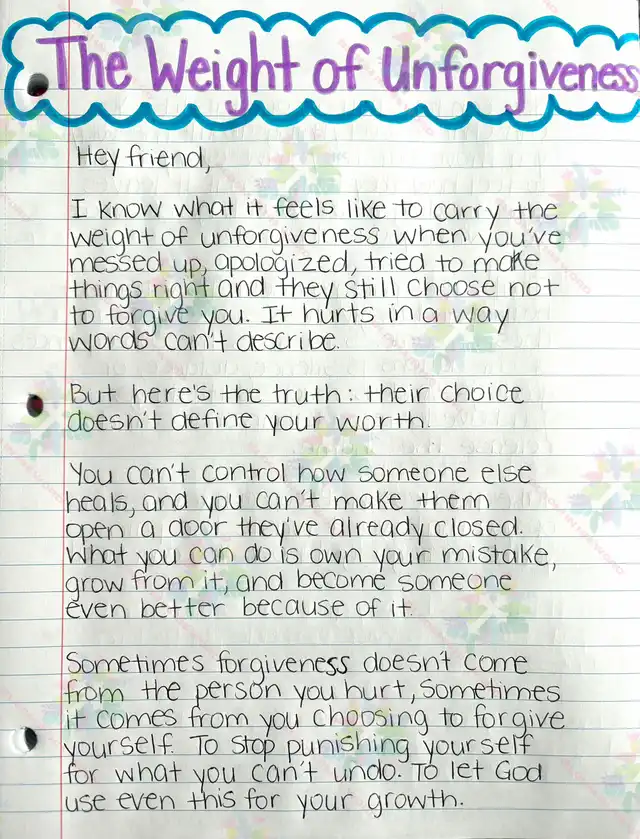 The Weight of Unforgiveness
Hey friend,
I know what it feels like to carry the
weight of unforgiveness when you've
messed up, apologized, tried to make
things right and they still choose not
to forgive you. It hurts in a way
words can't describe.
But here's the truth: their choice
doesn't define your worth.
You can't control how someone else
heals, and you can't make them
open a door they've already closed.
What you can do is own your mistake,
grow from it, and become someone
even better because of it.
Sometimes forgiveness doesn't come
from the person you hurt, sometimes
it comes from you choosing to forgive
yourself. To stop punishing yourself
for what you can't undo. To let God
use even this for your growth.